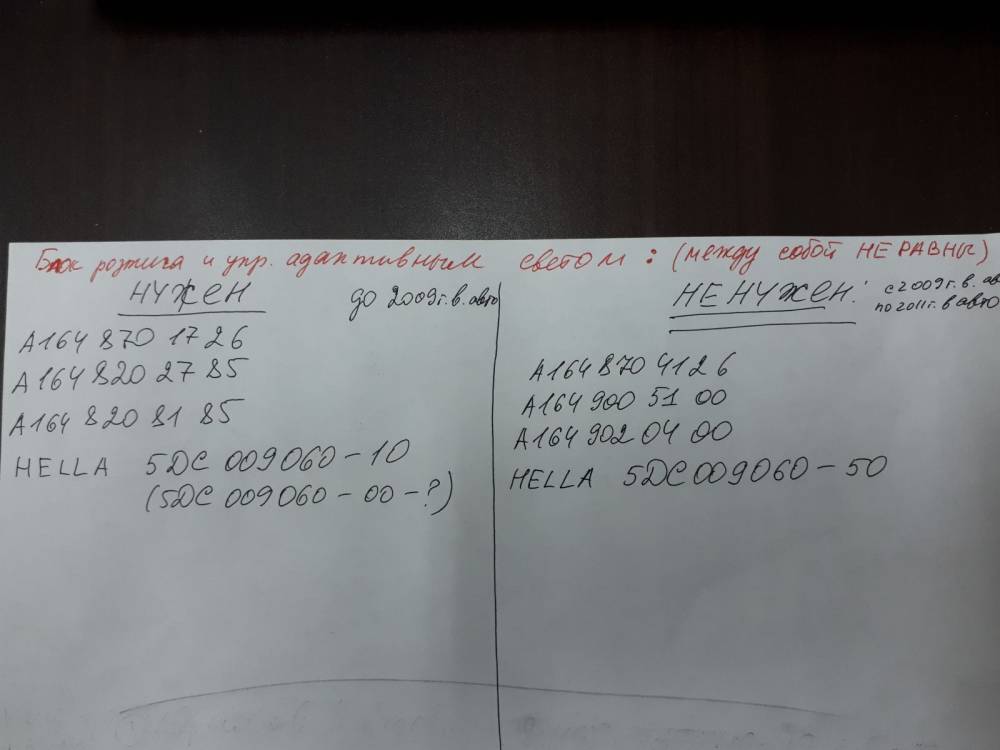 Блок розжига и упр. адаптивным светом: (между собой НЕ РАВНЫ)
НУЖЕН
до 2009г.в. авто
A164 870 17 26
A164 820 27 85
A164 820 81 85
HELLA 5DC 009060-10
(5DC 009060-00-?)
НЕ НУЖЕН!
с 2009г.в. ав
по 2011г.в авто
A164 870 41 26
A164 900 51 00
A164 902 04 00
HELLA 5DC 009060-50